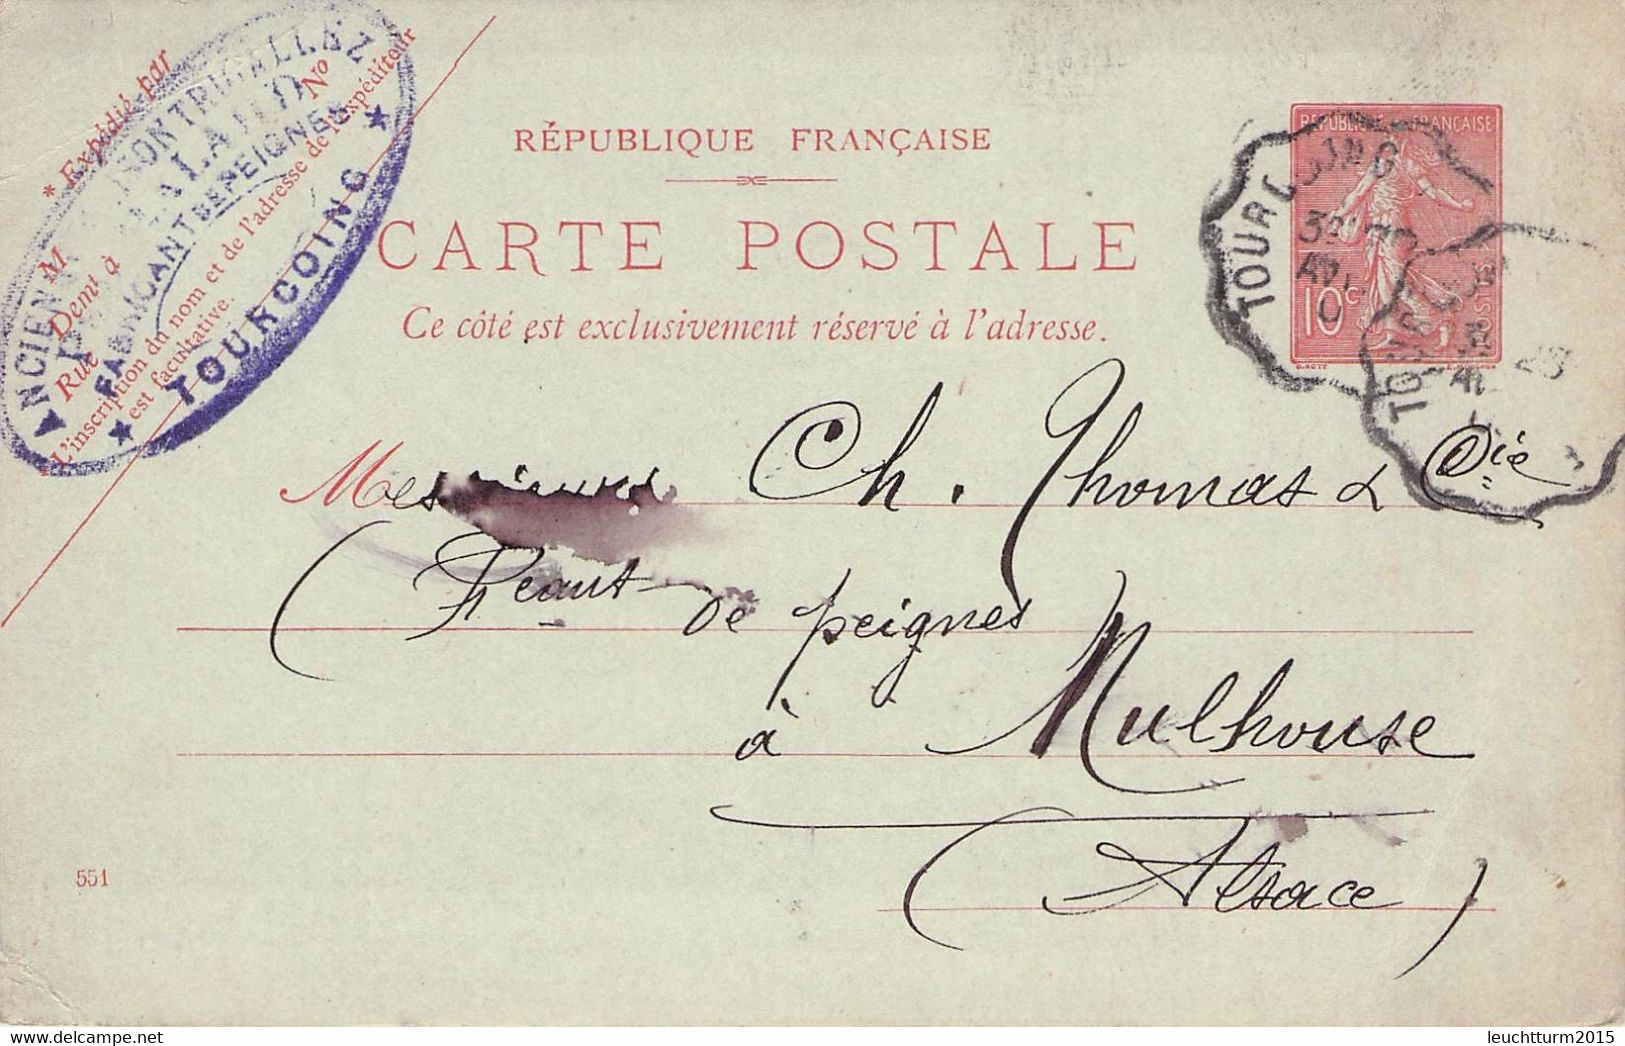 * Expédié par
M
Rue
Demt à
No
* L'inscription du nom et de l'adresse de l'expéditeur
est facultative.
FABRICANTS DE PEIGNES
* TOURCOING *
RÉPUBLIQUE FRANÇAISE
CARTE POSTALE
Ce côté est exclusivement réservé à l'adresse.
REPUBLIQUE FRANÇAISE
10c
POSTES
O.ROTY
TOURCOING
Mes Ch. Thomas & Cie
de peignes
à Mulhouse
(Alsace)
551
leuchtturm2015